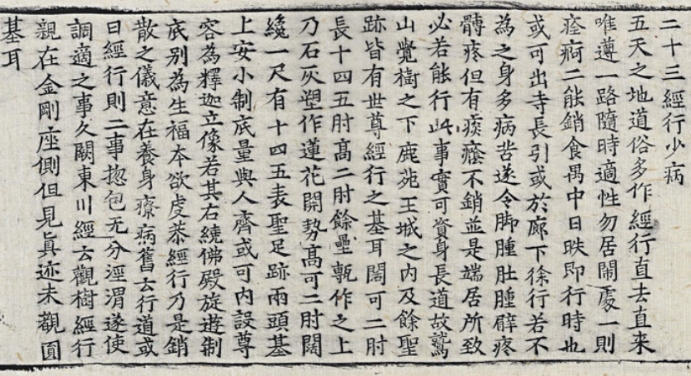 二十三經行少病
五天之地道俗多作經行直去直来
唯遵一路隨時適性勿居閙處一則
痊痾二能銷食禺中日昳即行時也
或可出寺長引或於廊下徐行若不
為之身多病苦遂令脚腫肚腫臂疼
髆疼但有痰癊不銷並是端居所致
必若能行此事實可資身長道故鷲
山覺樹之下鹿苑王城之内及餘聖
跡皆有世尊經行之基耳闊可二肘
長十四五肘髙二肘餘壘甎作之上
乃石灰塑作蓮花開勢髙可二肘闊
纔一尺有十四五表聖足跡兩頭基
上安小制底量與人齊或可内設尊
容為釋迦立像若其右繞佛殿旋遊制
底别為生福本欲虔恭經行乃是銷
散之儀意在養身療病舊云行道或
日經行則二事揔包无分涇渭遂使
調適之事久闕東川經云觀樹經行
親在金剛座側但見真迹未觀圓
基耳